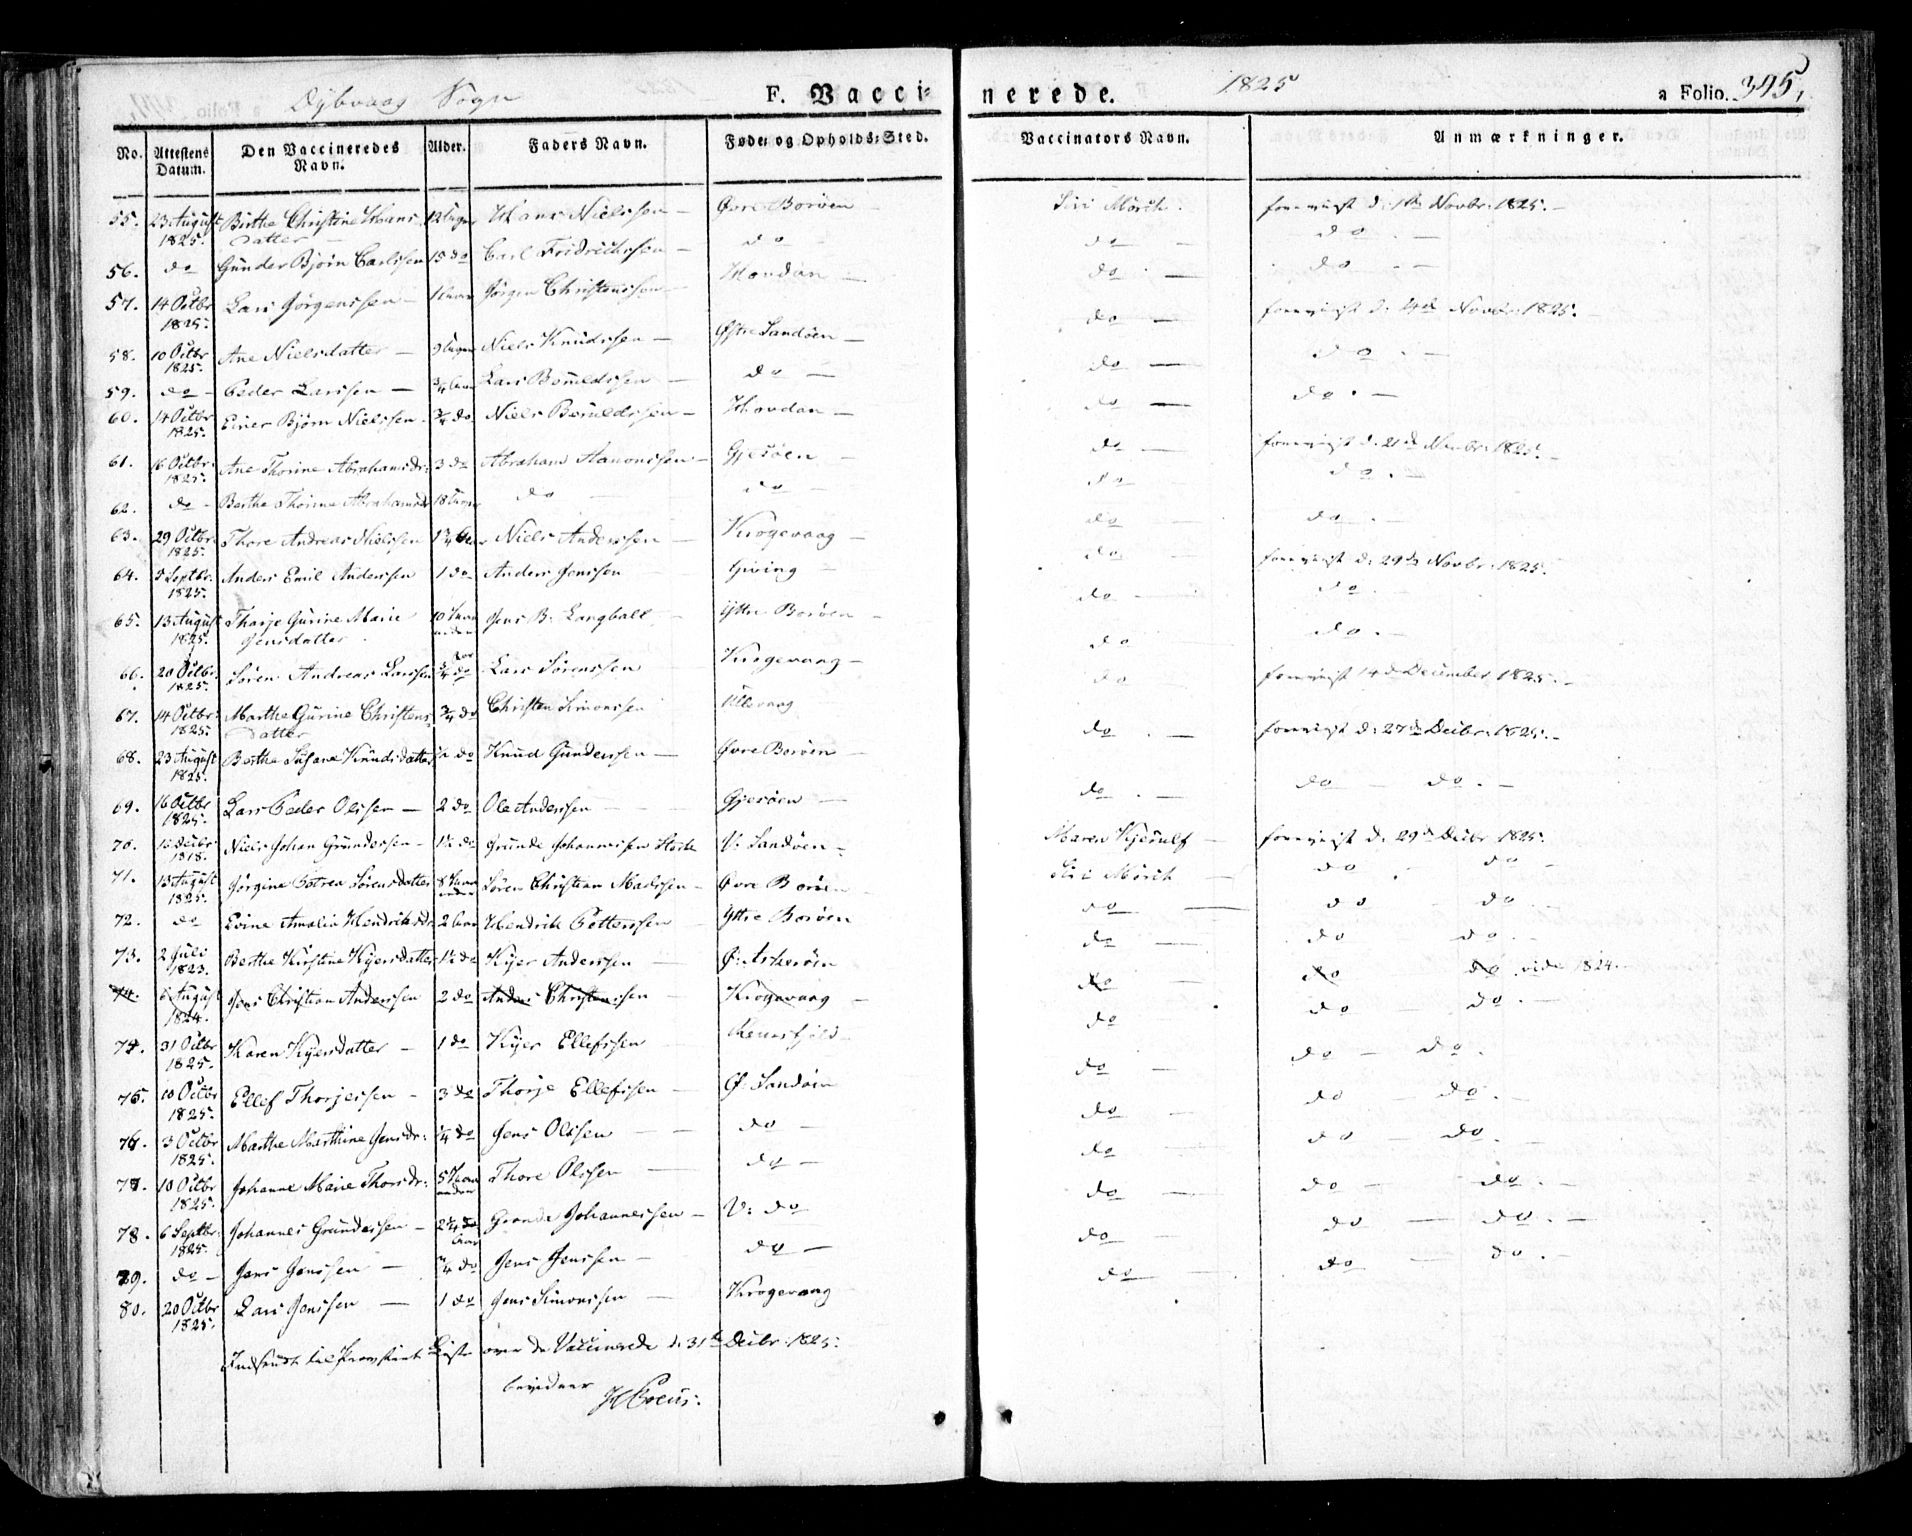 Dybvaag Sogn F. Vacci-
nerede. 1825 a Folio. 395,
No. Attestens Datum. Den Vaccineredes Navn. Alder. Faders Navn. Føde- og Opholds-Sted. Vaccinators Navn. Anmærkninger.
55. 23 August 1825. Birthe Christine Hans datter 12 Uger Hans Nielssen — Øvre Borøen Siri Mörch. foreviist d: 1ste Novbr: 1825. —
56. do Gunder Bjørn Carlssen 15 do Carl Fridrichssen — do do — do. —
57. 14 Octbr 1825. Lars Jörgenssen — 1 Aar Jörgen Christenssen — Hovdan — do. — do. —
58. 10 Octbr 1825. Ane Nielsdatter — 9 Uger Niels Knudssen — Østre Sandöen — do — foreviist d: 4de Novbr: 1825.
59. do — Peder Larssen — 3/4 Aar Lars — do — do — do. —
60. 14 Octbr 1825. Einer Bjørn Nielssen. 3/4 do Niels — Hovdan — do — do. —
61. 16 Octbr. 1825. Ane Thorine Abrahamsdr: 3 do Abraham Aanonssen — Gjesöen — do — foreviist d: 21de Novbr: 1825. —
62. do — Berthe Thorine Abrahamsdr 18 do do do do. —
63. 29 Octbr. 1825. Thore Andreas Nielssen Niels Anderssen — Krogevaag — do do. —
64. 5 Septbr. 1825. Anders Emil Anderssen 1 do Anders Jenssen Giving — do foreviist d: 29de Novbr: 1825.
65. 13 August 1825. Tharje Gurine Marie Jensdatter 10 Jens B: Langball Yttre Borøen — do do. —
66. 20 Octbr. 1825. Sören Andreas Larssen 3/4 do Lars Sörenssen Krogevaag — do do. —
67. 14 Octbr: 1825. Marthe Gurine Christens datter 3/4 do Christen Simonssen Ullevaag do foreviist 14de December 1825. —
68. 23 August 1825. Berthe Susane Knudsdatter 1/2 do Knud Gunderssen — Øvre Borøen — do. — foreviist d: 27de Decbr: 1825. —
69. 16 Octbr 1825. Lars Peder Olssen — 2 do Ole Anderssen — Gjesöen — do. — do do. —
70. Decbr 1818. Niels Johan Grunderssen — 1 1/2 do Grunde Johannessen V: Sandöen — Maren Kjerulf — foreviist d: 29de Decbr 1825.
71. 13 August 1825. Jörgine Sörensdatter 8 Sören Christian Madssen — Øvre Borøen Siri Mörch — do. do —
72. do Evine Amalia Hendriksdr 2 Aar Hendrik Petterssen Yttre Borøen do — do do. —
73. 2 Juli 1823. Berthe Kirstine Kijersdatter 1 1/2 do Kijer Anderssen — Ø: Askerøen do — do do. —
74. 6 August 1824. Jens Christian Anderssen 2 do Anders Christenssen — Krogevaag — do do do vide 1824. —
74. 31 Octbr 1825. Karen Kijersdatter — 1 do Kijer Ellefssen do do — do. —
75. 10 Octbr 1825. Ellef Thorjerssen — 3 do Thorje Ellefssen — Ø: Sandöen do — do — do.
76. 3 Octbr 1825. Marthe Marthine Jensdr: 1/4 do Jens Olssen — do — do — do — do. —
77. 10 Octbr 1825. Johanne Marie Thorsdr: 5 Thore Olssen — do — do — do — do.
78. 6 Septbr: 1825. Johannes Grunderssen — 2 1/4 Grunde Johannessen — V: do do — do — do. —
79. do — Jens Jenssen — 3/4 do Jens Jenssen — do — do — do — do. —
80. 20 Octbr 1825. Lars Jenssen — 1 do Jens Simonssen — Krogevaag do — do — do. —
Indsendt til Provstiet Liste over de Vaccinerede d: 31te Decbr: 1825.
bevidner